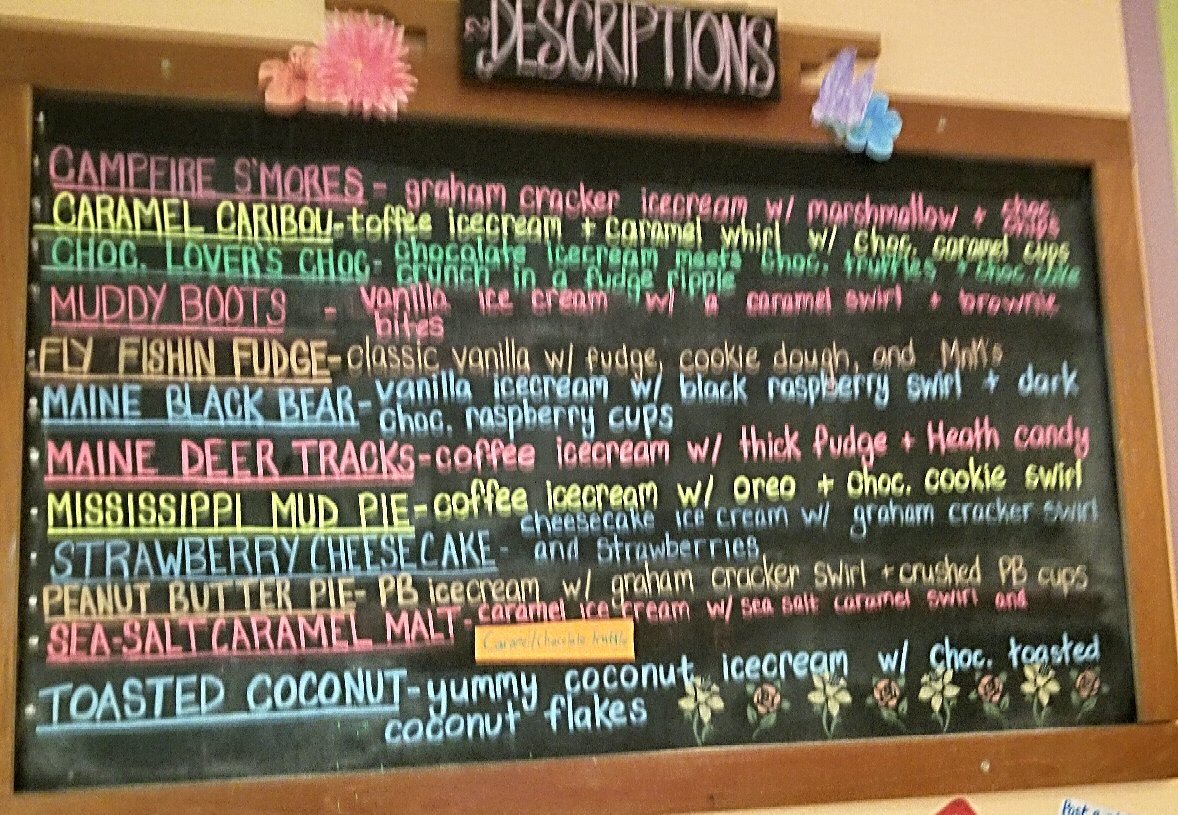 DESCRIPTIONS
CAMPFIRE S'MORES - graham cracker icecream w/ marshmallow + choc. chips
CARAMEL CARIBOU-toffee icecream + caramel whirl w/ choc. caramel cups
CHOC. LOVER'S CHOC- chocolate icecream meets choc. truffles + choc cake
crunch in a fudge ripple
MUDDY BOOTS - vanilla ice cream w/ a caramel swirl + brownie
bites
FLY FISHIN FUDGE-classic vanilla w/ fudge, cookie dough, and MnM's
MAINE BLACK BEAR-vanilla icecream w/ black raspberry swirl + dark
choc. raspberry cups
MAINE DEER TRACKS-coffee icecream w/ thick fudge + Heath candy
MISSISSIPPI MUD PIE-coffee icecream w/ oreo + choc. cookie swirl
STRAWBERRY CHEESECAKE - cheesecake ice cream w/ graham cracker swirl
and strawberries
PEANUT BUTTER PIE- PB icecream w/ graham cracker swirl + crushed PB cups
SEA-SALT CARAMEL MALT-caramel ice cream w/ sea salt caramel swirl and
TOASTED COCONUT-yummy coconut icecream w/ choc. toasted
coconut flakes